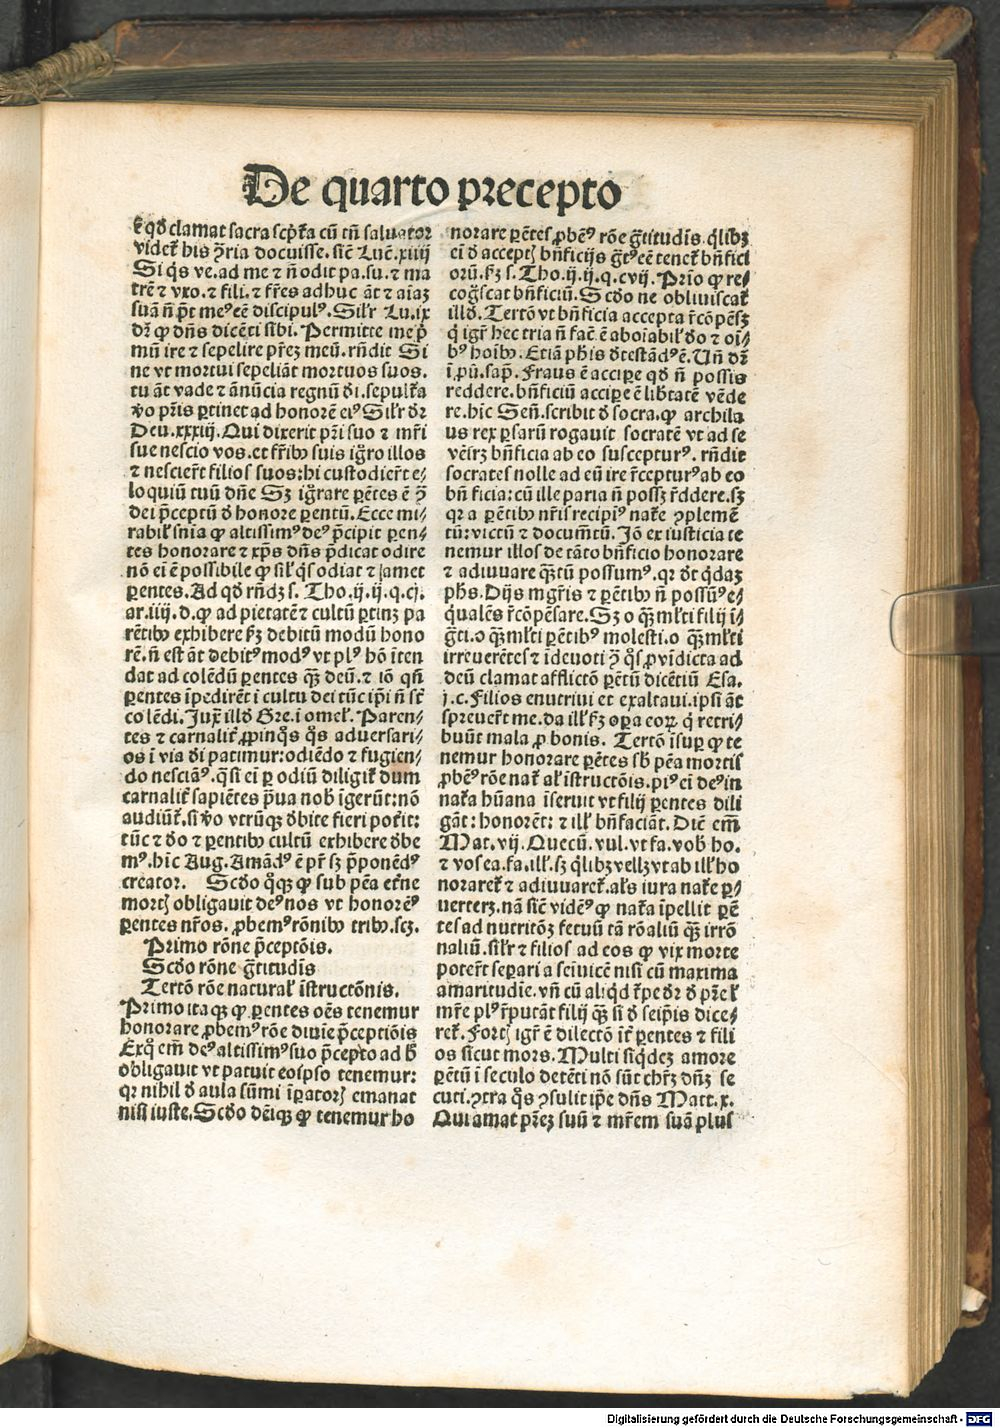 De quarto precepto
ē qd̄ clamat sacra scp̄t̄a cū tn̄ saluator
videt̄ his ꝯ̄ria docuisse. sic̄ Luc̄. xiiij
Si q̄s ve. ad me ⁊ n̄ odit pa. su. ⁊ ma
trē ⁊ vxo. ⁊ fili. ⁊ fr̄es adhuc āt ⁊ aīaꝫ
suā n̄ p̄t meꝰ eē discipulꝰ. Silr̄ Lu. ix
dr̄ ꝙ dn̄s dicēti sibi. Permitte me p̄
mū ire ⁊ sepelire pr̄eꝫ meū. rn̄dit Si
ne vt mortui sepeliāt mortuos suos.
tu āt vade ⁊ ānūcia regnū di. sepult̄a
v̄o pr̄is ꝑtinet ad honorē eiꝰ Silr̄ dr̄
Deu. xxxiij. Qui dixerit pr̄i suo ⁊ mr̄i
sue nescio vos. et fr̄ibꝰ suis igr̄o illos
⁊ nescier̄t filios suos: hi custodier̄t e⸗
loquiū tuū dn̄e Sꝫ igr̄are ꝑētes ē ꝯ̄
dei p̄ceptū d̄ honore ꝑentū. Ecce mi⸗
rabil̄ snīa ꝙ altissimꝰ deꝰ p̄cipit ꝑen⸗
tes honorare ⁊ xp̄s dn̄s p̄dicat odire
nō ei ē possibile ꝙ sil̄ q̄s odiat ⁊ amet
ꝑentes. Ad qd̄ rn̄dꝫ s. Tho. ij. ij. q. cj.
ar. iiij. d. ꝙ ad pietatē ⁊ cultū ꝑtinꝫ pa
rētibꝰ exhibere ẜꝫ debitū modū hono
rē. n̄ est āt debitꝰ modꝰ vt plꝰ hō īten
dat ad colēdū ꝑentes q̄ꝫ deū. ⁊ iō qn̄
ꝑentes īpedirēt i cultu dei tūc ip̄i n̄ st̄
colēdi. Juxͣ illd̄ Gre. i omel̄. Paren⸗
tes ⁊ carnalit̄ ꝓpinq̄s q̄s aduersari⸗
os i via di patimur: odiēdo ⁊ fugien⸗
do nesciāꝰ. q̄si ei ꝑ odiū diligit̄ dum
carnalit̄ sapiētes p̄ua nob̄ īgerūt: nō
audiūt̄. si v̄o vtrūqꝫ d̄bite fieri potīt:
tūc ⁊ d̄o ⁊ ꝑentibꝰ cultū exhibere d̄be
mꝰ. hīc Aug. Amādꝰ ē pr̄ sꝫ p̄ponēdꝰ
creator. Scd̄o q̄qꝫ ꝙ sub pēa et̄ne
mortꝭ obligauit deꝰ nos vt honorēꝰ
ꝑentes nr̄os. ꝓbemꝰ rōnibꝰ tribꝰ. scꝫ.
Primo rōne p̄ceptōis.
Scd̄o rōne gr̄titudīs
Tertō rōe natural̄ īstructōnis.
Primo itaqꝫ ꝙ ꝑentes oēs tenemur
honorare ꝓbemꝰ rōe diuīe p̄ceptiōis
Exq̄ em̄ deꝰ altissimꝰ suo p̄cepto ad h̄
obligauit vt patuit eoipso tenemur:
qꝛ nihil d̄ aula sūmi īꝑatorꝭ emanat
nisi iuste. Scd̄o dēiqꝫ ꝙ tenemur ho
norare ꝑētes ꝓbēꝰ rōe gr̄titudīs. q̄libꝫ
ei d̄ acceptꝭ bn̄ficijs gr̄tꝰ eē tenet̄ bn̄fici
orū. ẜꝫ s. Tho. ij. ij. q. cvij. Prīo ꝙ re⸗
cogn̄scat bn̄ficiū. Scd̄o ne obliuiscat̄
illd̄. Tertō vt bn̄ficia accepta r̄cōpēsꝫ
q̄ igr̄ hec tria n̄ fac̄ ē aboīabil̄ d̄o ⁊ oī⸗
bꝰ hoībꝰ. Etiā ph̄is d̄testādꝰ ē. Un̄ dr̄
i ꝓū. sap̄. Fraus ē accipe qd̄ n̄ possis
reddere. bn̄ficiū accipe ē lib̄tatē vēde
re. hīc Señ. scribit d̄ socra. ꝙ archila
us rex ꝑsarū rogauit socratē vt ad se
vēirꝫ bn̄ficia ab eo susceptur̄ꝰ. rn̄dit
socrates nolle ad eū ire r̄cepturꝰ ab eo
bn̄ficia: cū ille paria n̄ possꝫ r̄ddere. sꝫ
qꝛ a ꝑētibꝰ nr̄is recipiꝰ nat̄e ꝯplemē
tū: victū ⁊ documr̄tū. Jō ex iusticia te
nemur illos de tāto bn̄ficio honorare
⁊ adiuuare q̄ꝫtū possumꝰ. qꝛ d̄t q̄daꝫ
ph̄s. Dijs mgr̄is ⁊ ꝑētibꝰ n̄ possūꝰ e⸗
q̄ualēs r̄cōpēsare. Sꝫ o q̄ꝫ ml̄ti filij ī⸗
gr̄ti. o q̄ꝫ ml̄ti ꝑētibꝰ molesti. o q̄ꝫ ml̄ti
irreuerētes ⁊ īdeuoti ꝯ̄ q̄s ꝓ vīdicta ad
deū clamat afflictō ꝑētū dicētiū Esa.
j. c. Filios enutriui et exaltaui. ipsi āt
spreuer̄t me. da ill̄ ẜꝫ oꝑa eoꝝ q̄ retri⸗
buūt mala ꝓ bonis. Tertō īsuꝑ ꝙ te
nemur honorare ꝑētes sb̄ pēa mortis
ꝓbēꝰ rōe nat̄ al̄ īstructōis. piꝰ ei deꝰ in
nat̄a hūana īseruit vt filij ꝑentes dili
gāt: honorēt: ⁊ ill̄ bn̄faciāt. Dic̄ em̄
Mat. vij. Quecū. vul. vt fa. vob̄ ho.
⁊ vos ea. fa. ill̄. sꝫ q̄libꝫ vellꝫ vt ab ill̄ ho
noraret̄ ⁊ adiuuaret̄. al̄s iura nat̄e ꝑ⸗
uerterꝫ. nā sic̄ vidēꝰ ꝙ nat̄a īpellit ꝑē
tes ad nutritōꝫ fetuū tā rōaliū q̄ꝫ irrō
naliū. silr̄ ⁊ filios ad eos ꝙ vix morte
poter̄t seꝑari a seīuicē nisi cū maxima
amaritudīe. vn̄ cū aliq̄d t̄pe dr̄ d̄ pr̄e l̄
mr̄e plꝰ r̄putāt filij q̄ꝫ si d̄ seip̄is dice⸗
ret̄. Fortꝭ igr̄ ē dilectō it̄ ꝑentes ⁊ fili
os sicut mors. Multi siq̄deꝫ amore
ꝑētū i seculo detēti nō sūt chr̄ꝫ dn̄ꝫ se
cuti. ꝯtra q̄s ꝯsulit ip̄e dn̄s Matt. x.
Qui amat pr̄eꝫ suū ⁊ mr̄em suā plus
Digitalisierung gefördert durch die Deutsche Forschungsgemeinschaft - DFG